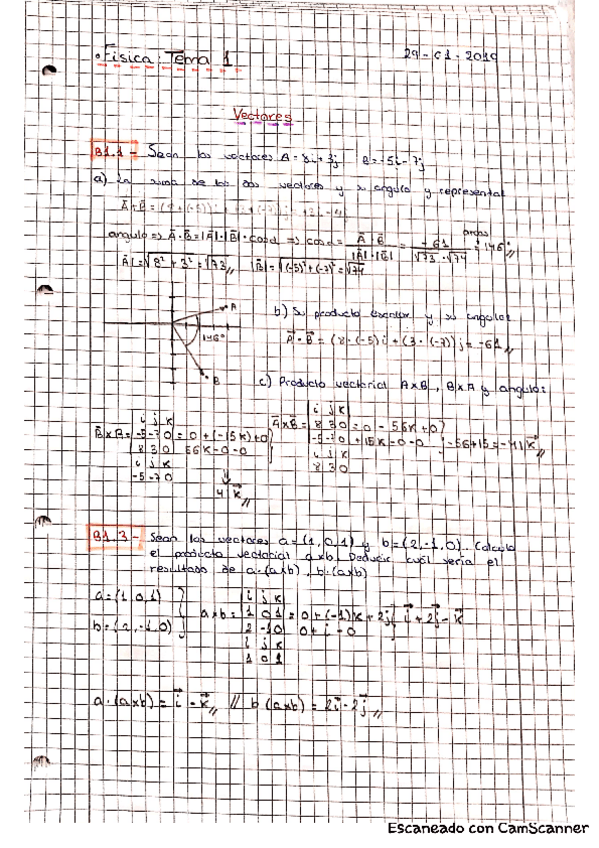 • Física: Tema 1
29-01-2019
Vectores
B1.1 - Sean los vectores A = 8i + 3j B = -5i - 7j
a) La suma de los dos vectores y su ángulo y representar
A + B = (8 + (-5))i
angulo => A · B = |A| · |B| · cosα => cosα = A · B / |A| · |B| = -61 / √73 · √74 = 146° //
|A| = √8² + 3² = √73 // |B| = √(-5)² + (-7)² = √74
A
146°
B
b) Su producto escalar y su angulo:
A · B = (8 · (-5)i + (3 · (-7))j = -61 //
c) Producto vectorial AxB, BxA y angulo:
i j k
BxA = -5 -7 0 = 0 + (-15k) + 0
8 3 0 56k - 0 - 0
i j k
-5 -7 0
41 k //
i j k
AxB = 8 3 0 = 0 - 56k + 0
-5 -7 0 + 15k - 0 - 0 -56 + 15 = -41 k //
i j k
8 3 0
B1.3 - Sean los vectores a = (1, 0, 1) y b = (2, -1, 0). Calcula
el producto vectorial axb. Deducir cuál sería el
resultado de a·(axb), b·(axb)
a = (1, 0, 1)
b = (2, -1, 0)
i j k
axb = 1 0 1 = 0 + (-1)k + 2j i + 2j - k
2 -1 0 0 + i - 0
i j k
1 0 1
a · (axb) = i - k // // b (axb) = 2i - 2j //
Escaneado con CamScanner